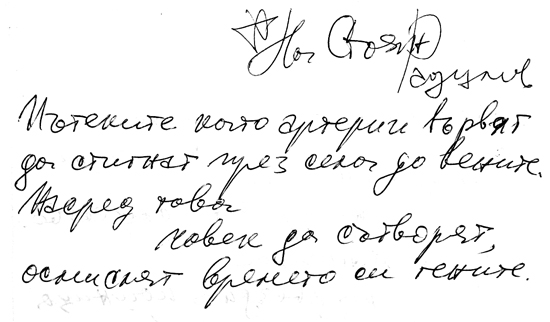 На Стоян
Радулов
Пътеките като артерии вървят
да стигнат през села до вените.
Насред това
човек да сътворят,
осмислят времето си гените.